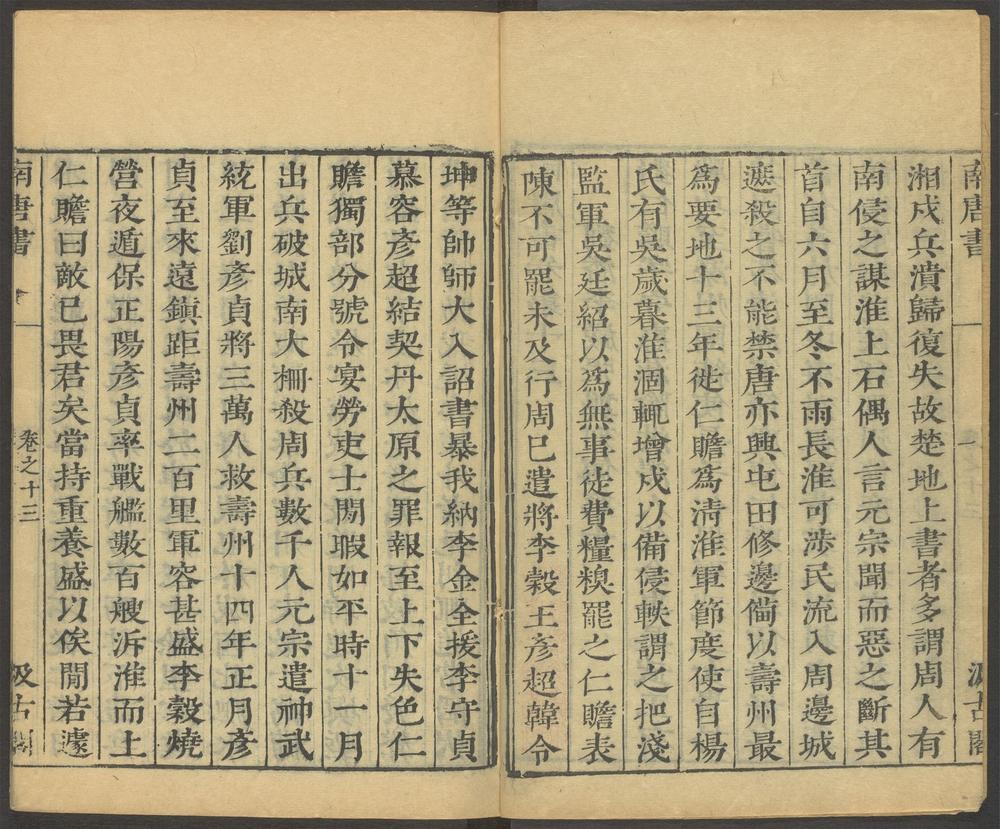 南唐書
一
汲古閣
湘戍兵潰歸復失故楚地上書者多謂周人有
南侵之謀淮上石偶人言元宗聞而惡之斷其
首自六月至冬不雨長淮可涉民流入周邊城
遮殺之不能禁唐亦興屯田修邊備以壽州最
爲要地十三年徙仁贍爲淸淮軍節度使自楊
氏有吳歲暮淮涸輒增戍以備侵軼謂之把淺
監軍吳廷紹以爲無事徒費糧糗罷之仁贍表
陳不可罷未及行周已遣將李穀王彥超韓令
坤等帥師大入詔書暴我納李金全援李守貞
慕容彥超結契丹太原之罪報至上下失色仁
贍獨部分號令宴勞吏士閒暇如平時十一月
出兵破城南大柵殺周兵數千人元宗遣神武
統軍劉彥貞將三萬人救壽州十四年正月彥
貞至來遠鎭距壽州二百里軍容甚盛李穀燒
營夜遁保正陽彥貞率戰艦數百艘泝淮而上
仁贍曰敵已畏君矣當持重養盛以俟閒若遽
南唐書
卷之十三
汲古閣